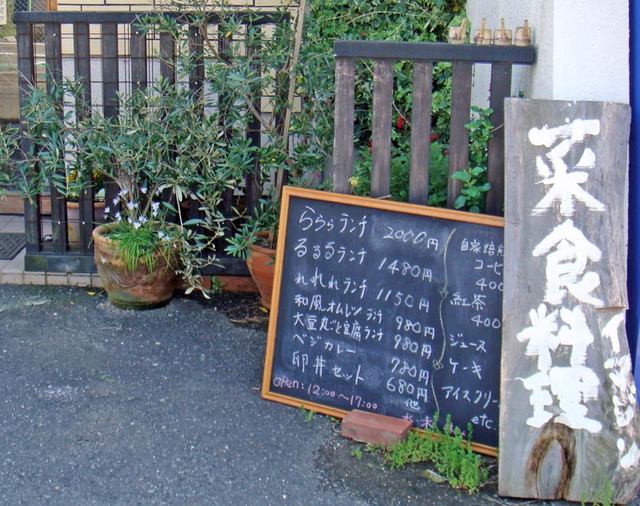 らららランチ 2000円
るるるランチ 1480円
れれれランチ 1150円
和風オムレツランチ 980円
大豆丸ごと豆腐ランチ 980円
ベジカレー 780円
卵丼セット 680円
open: 12:00～17:00
他
自家焙煎
コーヒ
400
紅茶
400
ジュース
ケーキ
アイスクリー
etc.
菜食料理